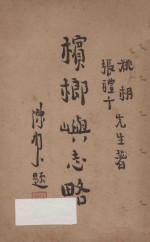 姚枬
張禮千 先生著
檳榔嶼志略
題